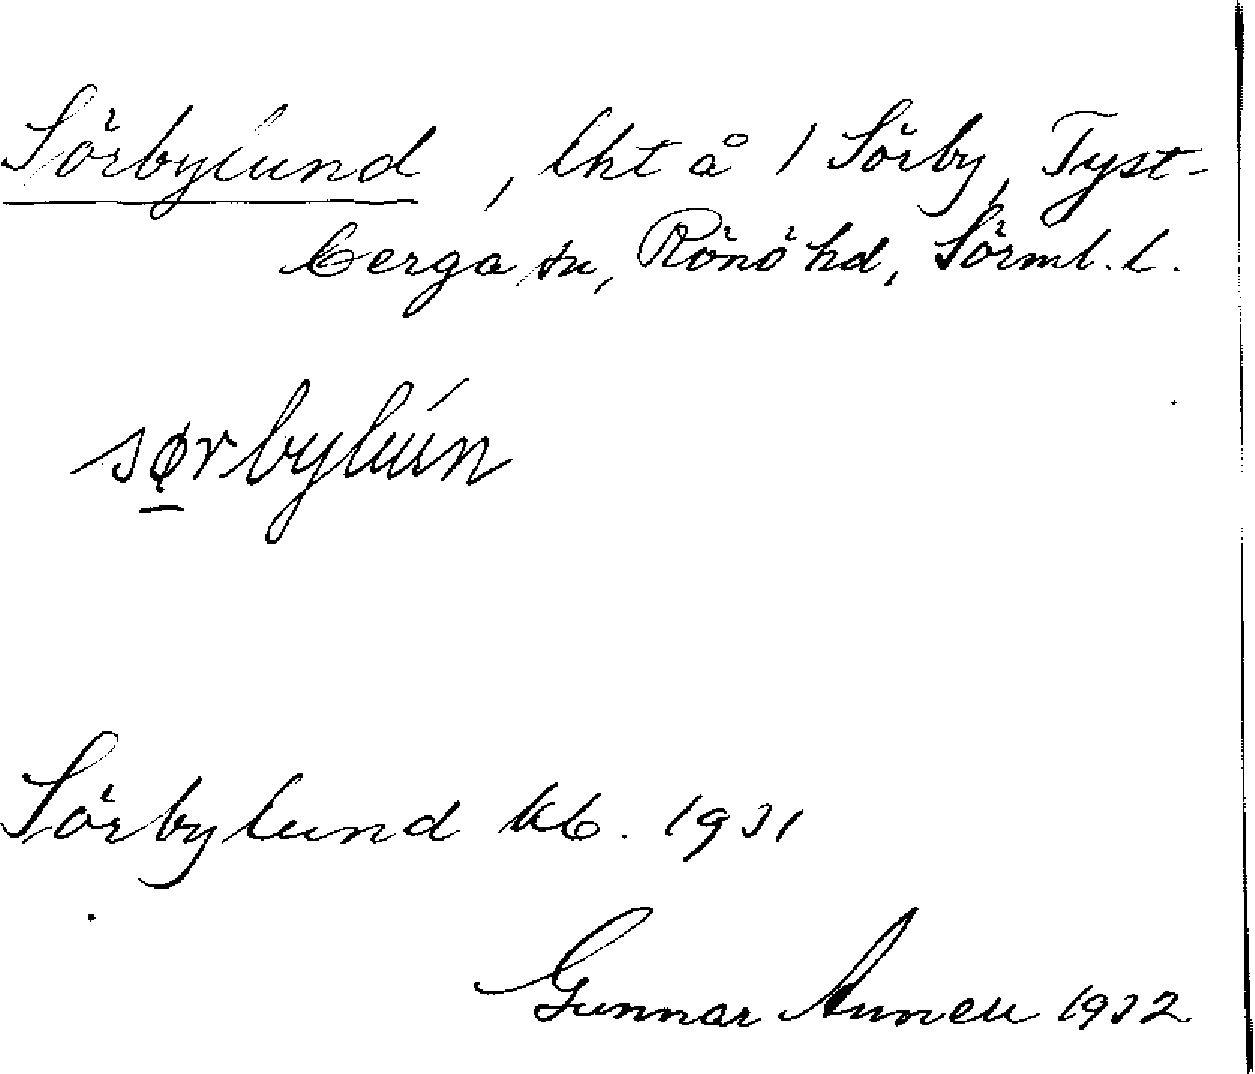 Sörbylund, lht å 1 Sörby, Tyst-
berga sn, Rönö hd, Sörml. l.
sørbylún
Sörbylund kb. 1931
Gunnar 1932